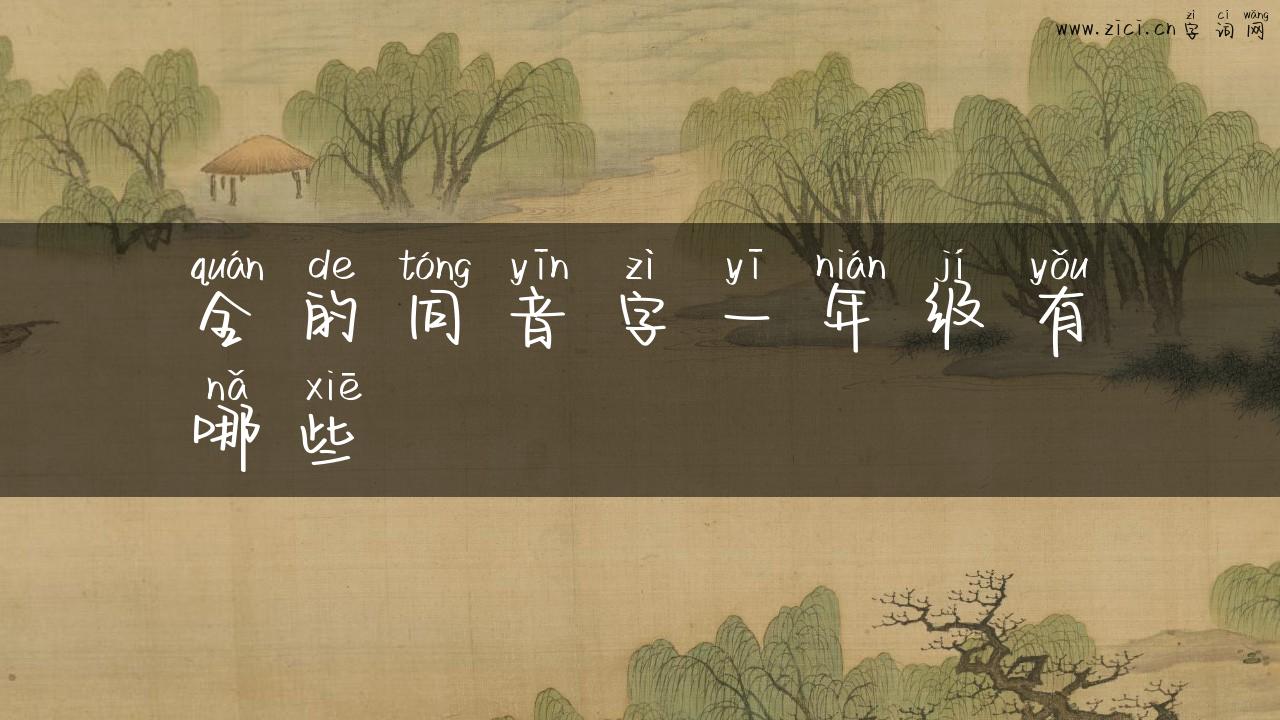 zì cí wǎng
www.zici.cn 字词网
quán de tóng yīn zì yī nián jí yǒu
全的同音字一年级有
nǎ xiē
哪些